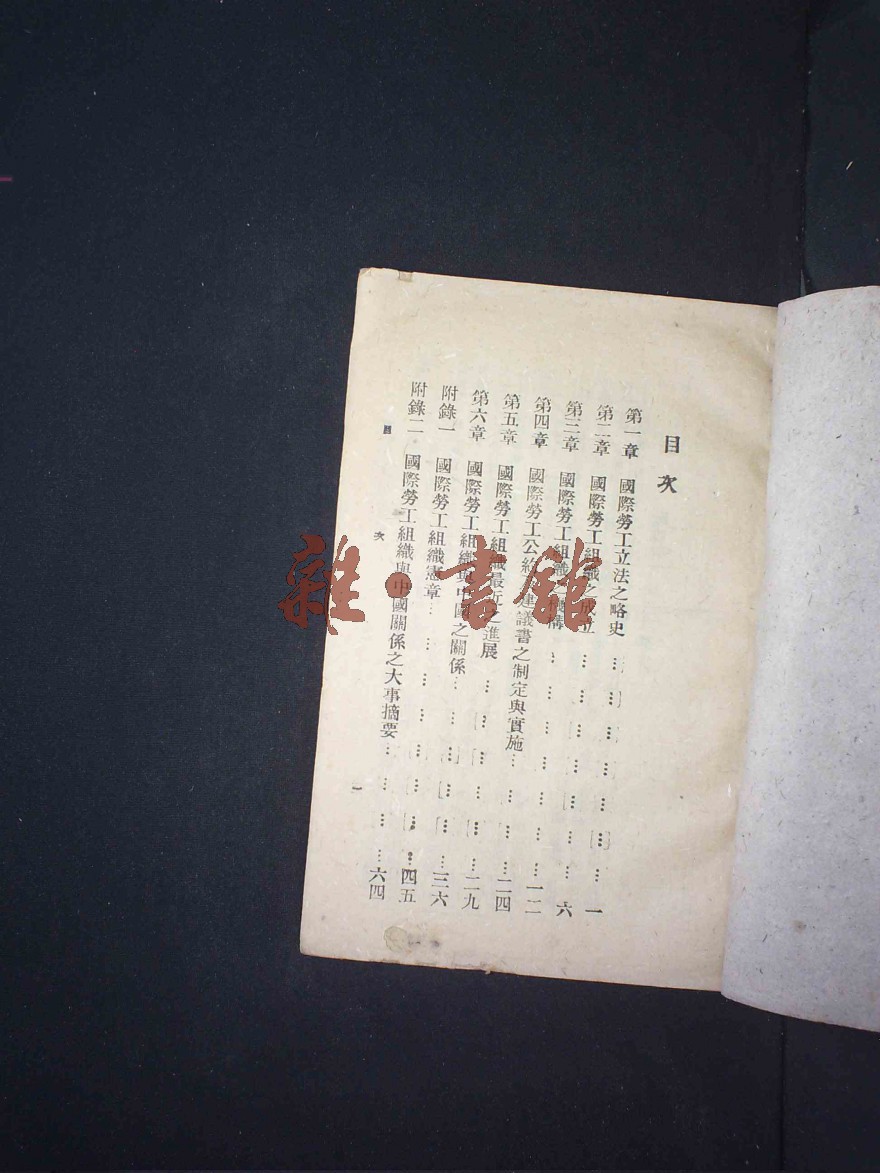 目次
第一章 國際勞工立法之略史……一
第二章 國際勞工組織之成立……六
第三章 國際勞工組織 機構……一二
第四章 國際勞工公約 建議書之制定與實施……二四
第五章 國際勞工組織最近之進展……二九
第六章 國際勞工組織與中國之關係……三六
附錄一 國際勞工組織憲章……四五
附錄二 國際勞工組織與中國關係之大事摘要……六四
目次
一
雜·書館